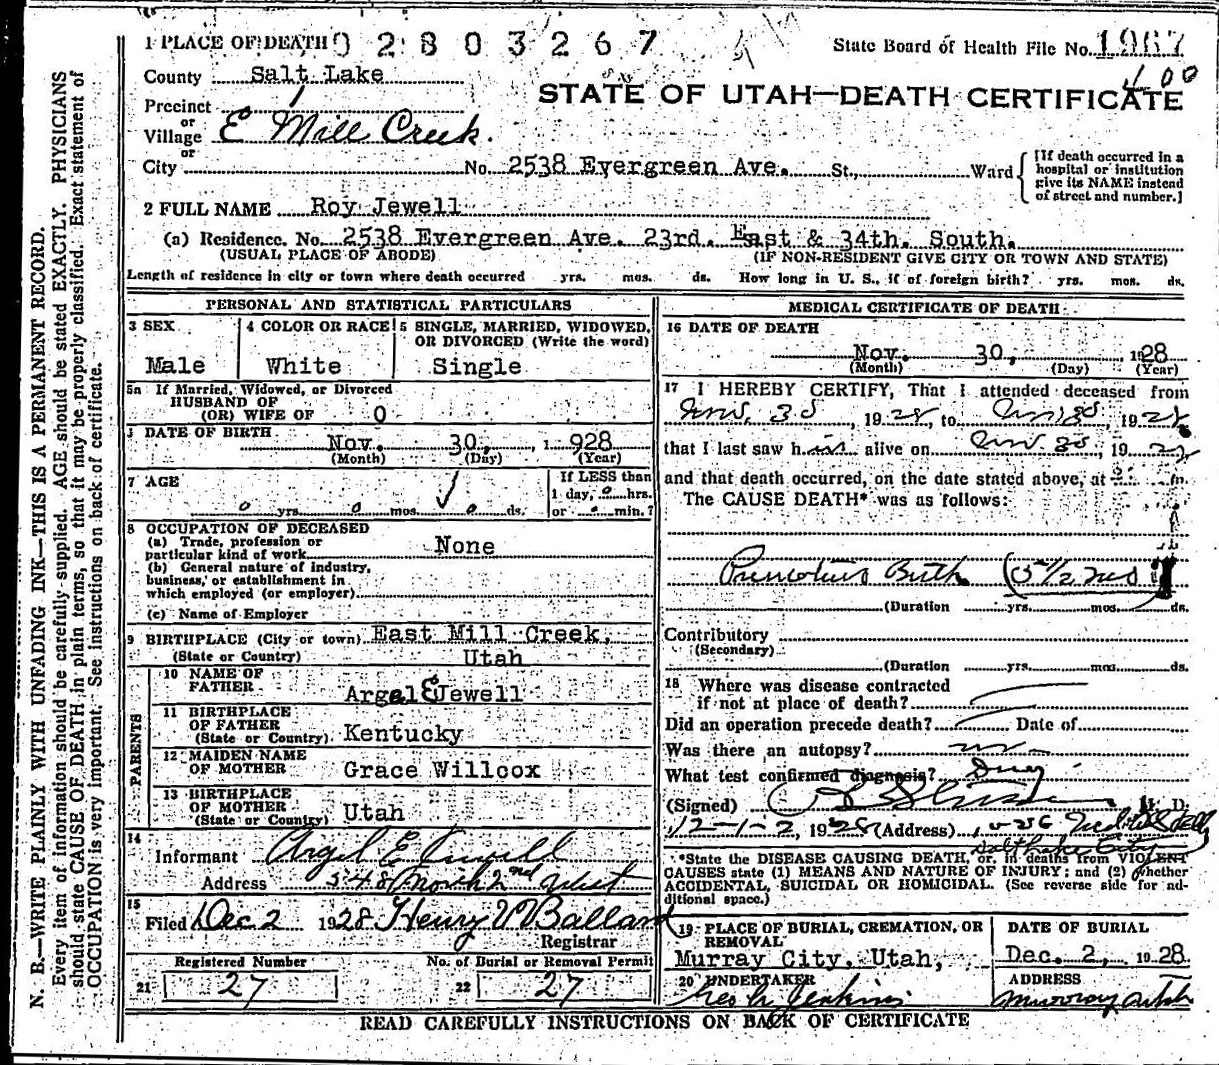 1 PLACE OF DEATH 0 2 8 0 3 2 6 7
State Board of Health File No. 1967
County Salt Lake
400
STATE OF UTAH—DEATH CERTIFICATE
Precinct
or
Village E Mill Creek.
or
City No. 2538 Evergreen Ave. St., Ward
[If death occurred in a
hospital or institution
give its NAME instead
of street and number.]
2 FULL NAME Roy Jewell
(a) Residence. No. 2538 Evergreen Ave. 23rd. East & 34th. South.
(USUAL PLACE OF ABODE) (IF NON-RESIDENT GIVE CITY OR TOWN AND STATE)
Length of residence in city or town where death occurred yrs. mos. ds. How long in U. S., if of foreign birth? yrs. mos. ds.
PERSONAL AND STATISTICAL PARTICULARS
3 SEX
Male
4 COLOR OR RACE
White
5 SINGLE, MARRIED, WIDOWED,
OR DIVORCED (Write the word)
Single
5a If Married, Widowed, or Divorced
HUSBAND OF
(OR) WIFE OF 0
DATE OF BIRTH
Nov. 30, 1928
(Month) (Day) (Year)
7 AGE
0 yrs. 0 mos. 0 ds.
If LESS than
1 day, 0 hrs.
or 0 min.?
8 OCCUPATION OF DECEASED
(a) Trade, profession or
particular kind of work None
(b) General nature of industry,
business, or establishment in
which employed (or employer)
(c) Name of Employer
9 BIRTHPLACE (City or town) East Mill Creek,
(State or Country) Utah
PARENTS
10 NAME OF
FATHER Argel E Jewell
11 BIRTHPLACE
OF FATHER
(State or Country) Kentucky
12 MAIDEN NAME
OF MOTHER Grace Willcox
13 BIRTHPLACE
OF MOTHER
(State or Country) Utah
14
Informant Argel E Jewell
Address 548 North 2nd West
15
Filed Dec 2 1928 Henry V Ballard
Registrar
Registered Number
21 27
No. of Burial or Removal Permit
22 27
MEDICAL CERTIFICATE OF DEATH
16 DATE OF DEATH
Nov. 30, 1928
(Month) (Day) (Year)
17 I HEREBY CERTIFY, That I attended deceased from
Nov. 30, 1928, to Nov 30, 1928
that I last saw him alive on Nov. 30, 1928
and that death occurred, on the date stated above, at m.
The CAUSE DEATH* was as follows:
Premature Birth (5 1/2 mos)
(Duration yrs. mos. ds.
Contributory
(Secondary)
(Duration yrs. mos. ds.
18 Where was disease contracted
if not at place of death?
Did an operation precede death? Date of
Was there an autopsy? no
What test confirmed diagnosis?
(Signed) M. D.
12-1-2, 1928 (Address)
Salt Lake City
*State the DISEASE CAUSING DEATH, or, in deaths from VIOLENT
CAUSES state (1) MEANS AND NATURE OF INJURY; and (2) whether
ACCIDENTAL, SUICIDAL OR HOMICIDAL. (See reverse side for ad-
ditional space.)
19 PLACE OF BURIAL, CREMATION, OR
REMOVAL
Murray City, Utah,
DATE OF BURIAL
Dec. 2, 1928
20 UNDERTAKER
Geo A Jenkins
ADDRESS
Murray Utah
READ CAREFULLY INSTRUCTIONS ON BACK OF CERTIFICATE
N. B.—WRITE PLAINLY WITH UNFADING INK—THIS IS A PERMANENT RECORD.
Every item of information should be carefully supplied. AGE should be stated EXACTLY. PHYSICIANS
should state CAUSE OF DEATH in plain terms, so that it may be properly classified. Exact statement of
OCCUPATION is very important. See instructions on back of certificate.